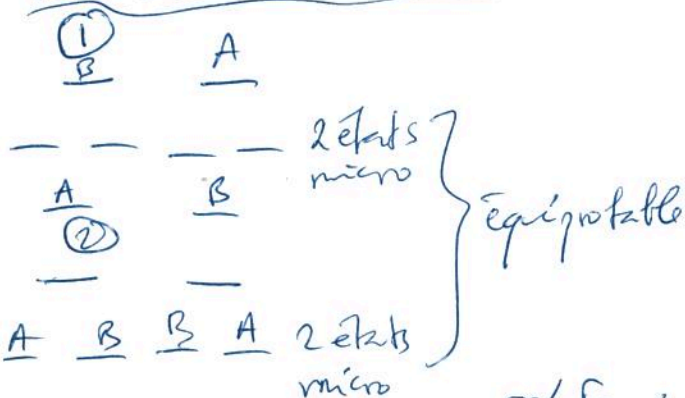 ①
B A
2 états
micro
A B équiprobable
②
A B B A 2 états
micro